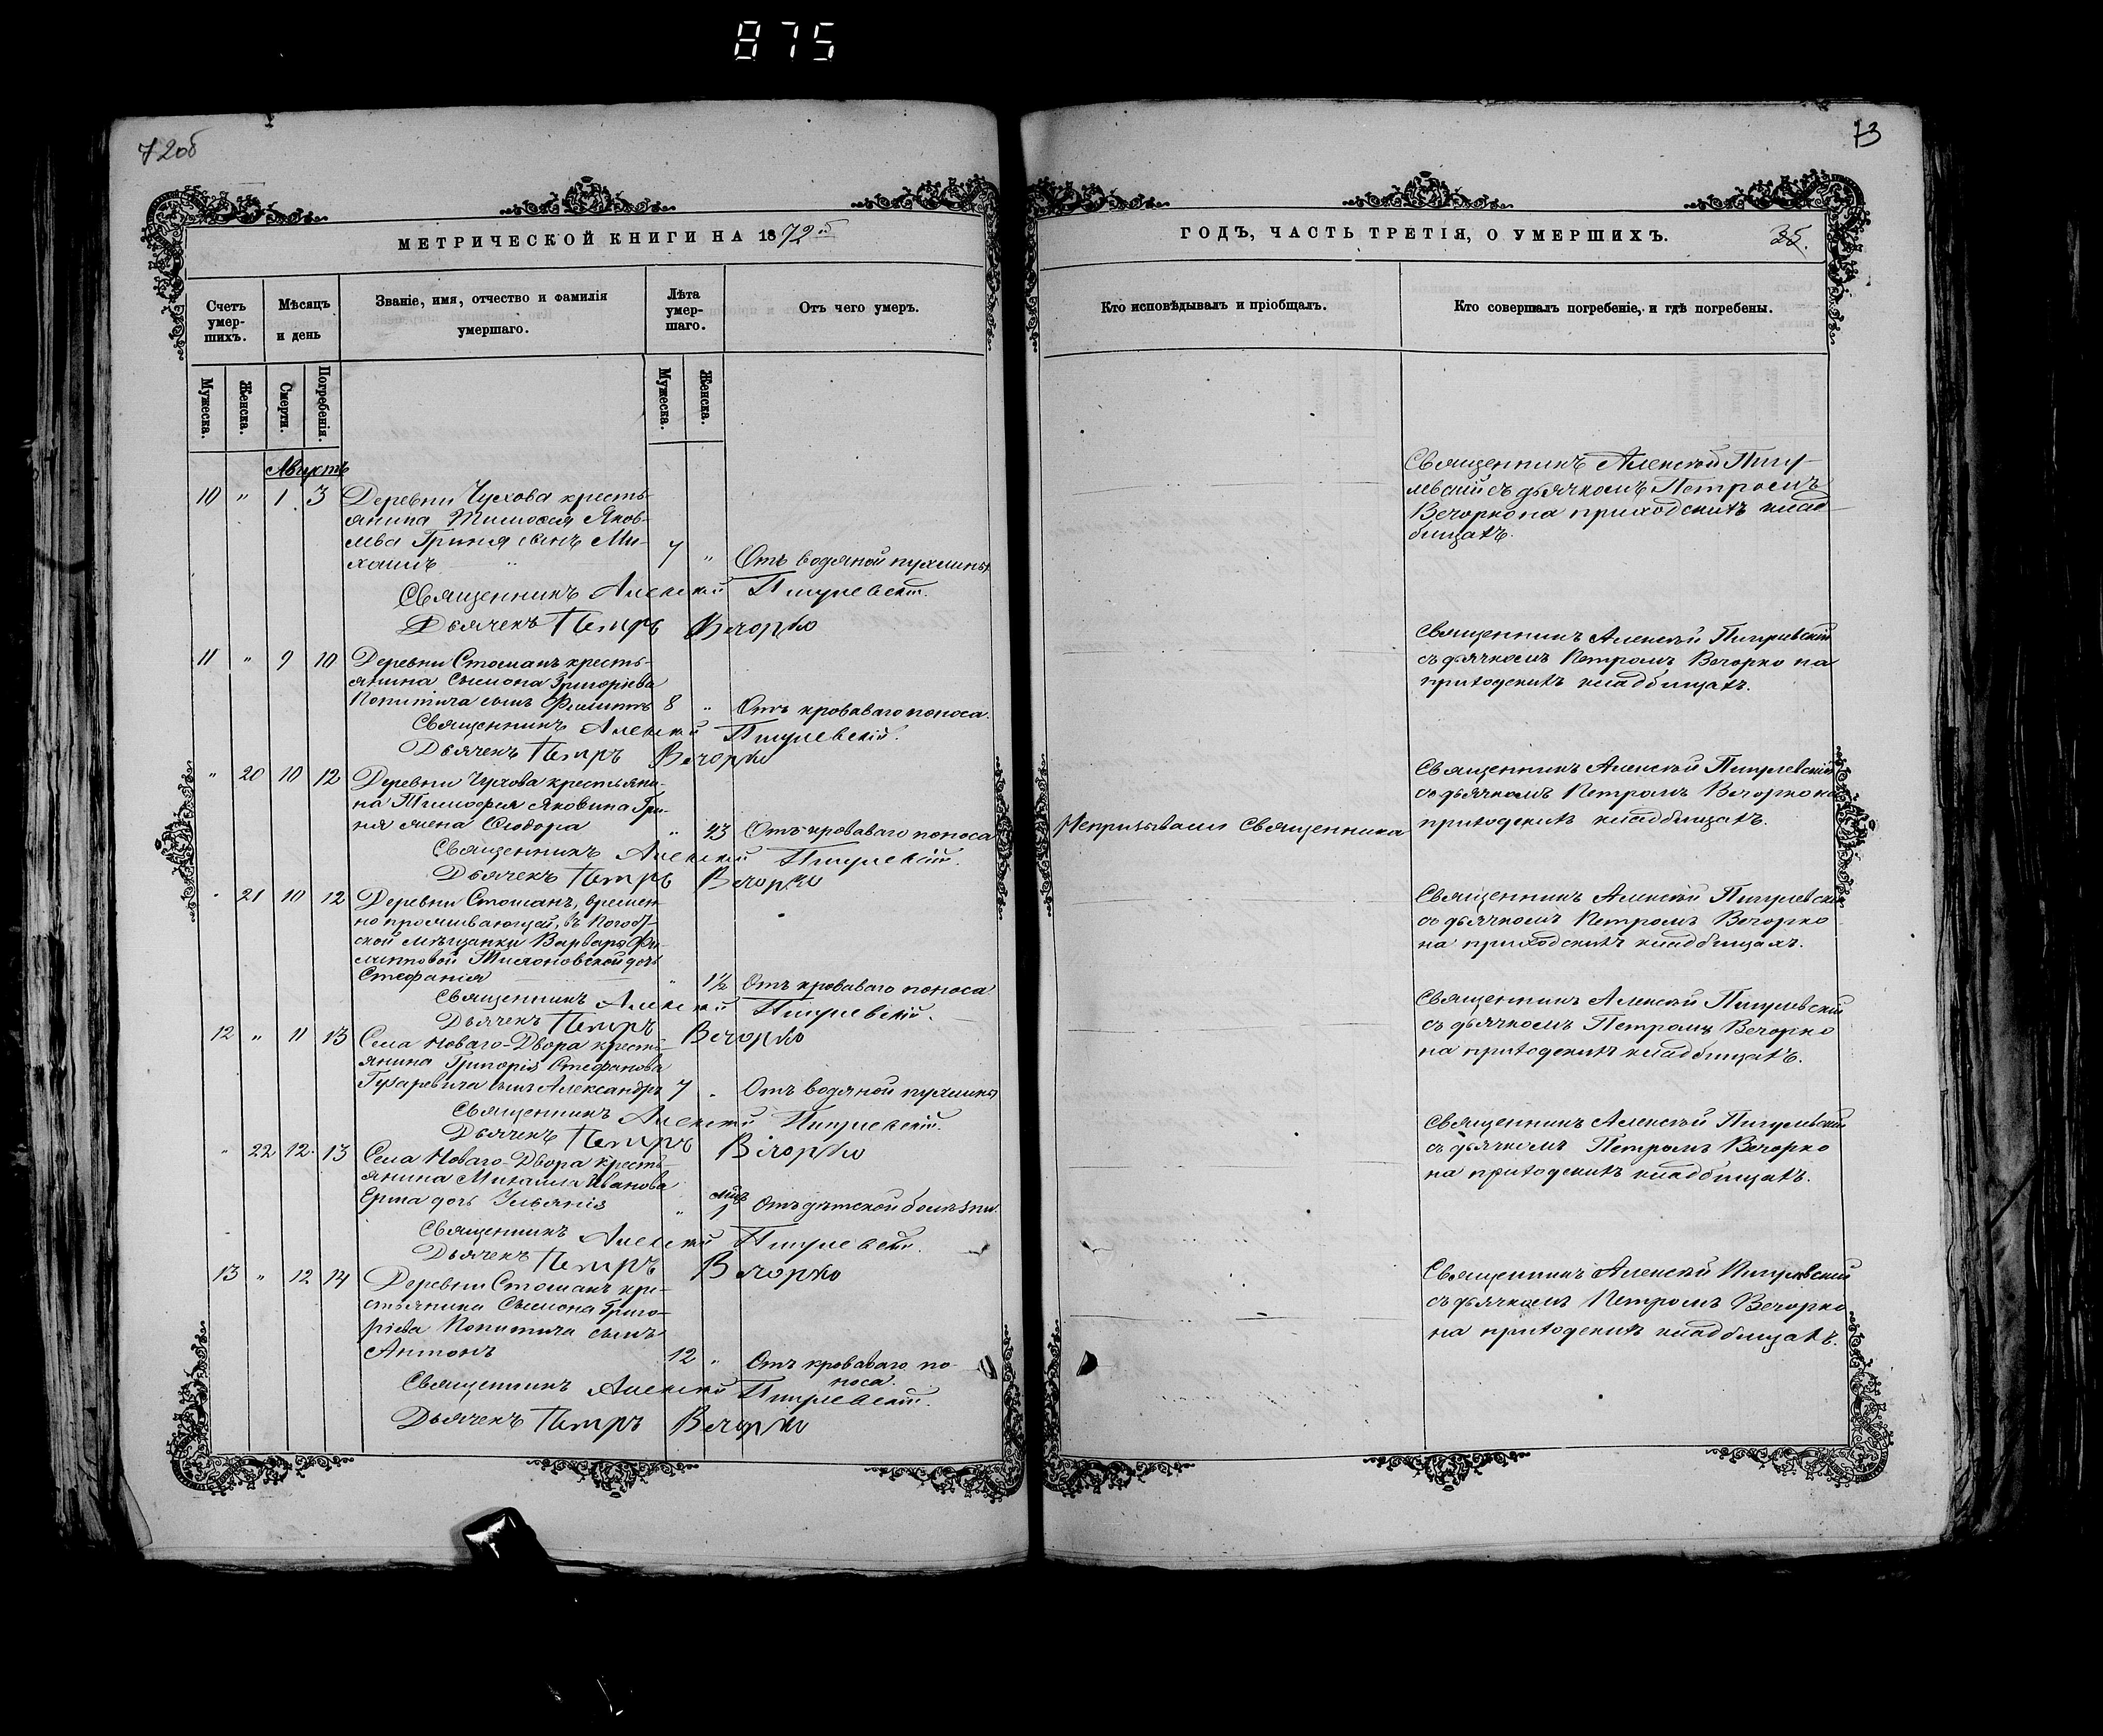 875
72об
МЕТРИЧЕСКОЙ КНИГИ НА 1872й
Счетъ умер-шихъ.
Мѣсяцъ и день
Званіе, имя, отчество и фамилія умершаго.
Лѣта умер-шаго.
Отъ чего умеръ.
Мужеска.
Женска.
Смерти.
Погребенія.
Мужеска.
Женска.
Августъ
10 " 1 3 Деревни Чухова кресть-
янина Тимофея Яков-
лева Гриня сынъ Ми-
хаилъ 7 " Отъ водяной пухлины
Священникъ Алексѣй Пигулевскій.
Дьячекъ Петръ Вечорко
11 " 9 10 Деревни Стоманъ кресть-
янина Сымона Григоріева
сынъ Филиппъ 8 " Отъ кроваваго поноса.
Священникъ Алексѣй Пигулевскій.
Дьячекъ Петръ Вечорко
" 20 10 12 Деревни Чухова крестьяни-
на Тимофея Яковлева Гри-
ня жена Ѳіодора " 23 Отъ кроваваго поноса
Священникъ Алексѣй Пигулевскій.
Дьячекъ Петръ Вечорко
" 21 10 12 Деревни Стоманъ, времен-
но проживающей, въ
ской мѣщанки Варвары Фи-
липповой дочь
Стефанія " 1½ Отъ кроваваго поноса
Священникъ Алексѣй Пигулевскій.
Дьячекъ Петръ Вечорко
12 " 11 13 Села Новаго-Двора кресть-
янина Григорія Стефанова
сынъ Александръ 7 " Отъ водяной пухлины
Священникъ Алексѣй Пигулевскій.
Дьячекъ Петръ Вечорко
" 22 12 13 Села Новаго-Двора кресть-
янина Михаила Иванова
дочь Ульянія " 1 Отъ дѣтской болѣзни.
Священникъ Алексѣй Пигулевскій.
Дьячекъ Петръ Вечорко
13 " 12 14 Деревни Стоманъ кре-
стьянина Сымона Григо-
ріева сынъ
Антонъ 12 " Отъ кроваваго по-
носа.
Священникъ Алексѣй Пигулевскій.
Дьячекъ Петръ Вечорко
73
ГОДЪ, ЧАСТЬ ТРЕТІЯ, О УМЕРШИХЪ.
35.
Кто исповѣдывалъ и пріобщалъ.
Кто совершалъ погребеніе, и гдѣ погребены.
Священникъ Алексѣй Пигу-
левскій съ дьячкомъ Петромъ
Вечорко на приходскихъ клад-
бищахъ.
Священникъ Алексѣй Пигулевскій
съ дьячкомъ Петромъ Вечорко на
приходскихъ кладбищахъ.
Священникъ Алексѣй Пигулевскій
съ дьячкомъ Петромъ Вечорко на
Непризывали Священника приходскихъ кладбищахъ.
Священникъ Алексѣй Пигулевскій
съ дьячкомъ Петромъ Вечорко
на приходскихъ кладбищахъ.
Священникъ Алексѣй Пигулевскій
съ дьячкомъ Петромъ Вечорко
на приходскихъ кладбищахъ.
Священникъ Алексѣй Пигулевскій
съ дьячкомъ Петромъ Вечорко
на приходскихъ кладбищахъ.
Священникъ Алексѣй Пигулевскій
съ дьячкомъ Петромъ Вечорко
на приходскихъ кладбищахъ.